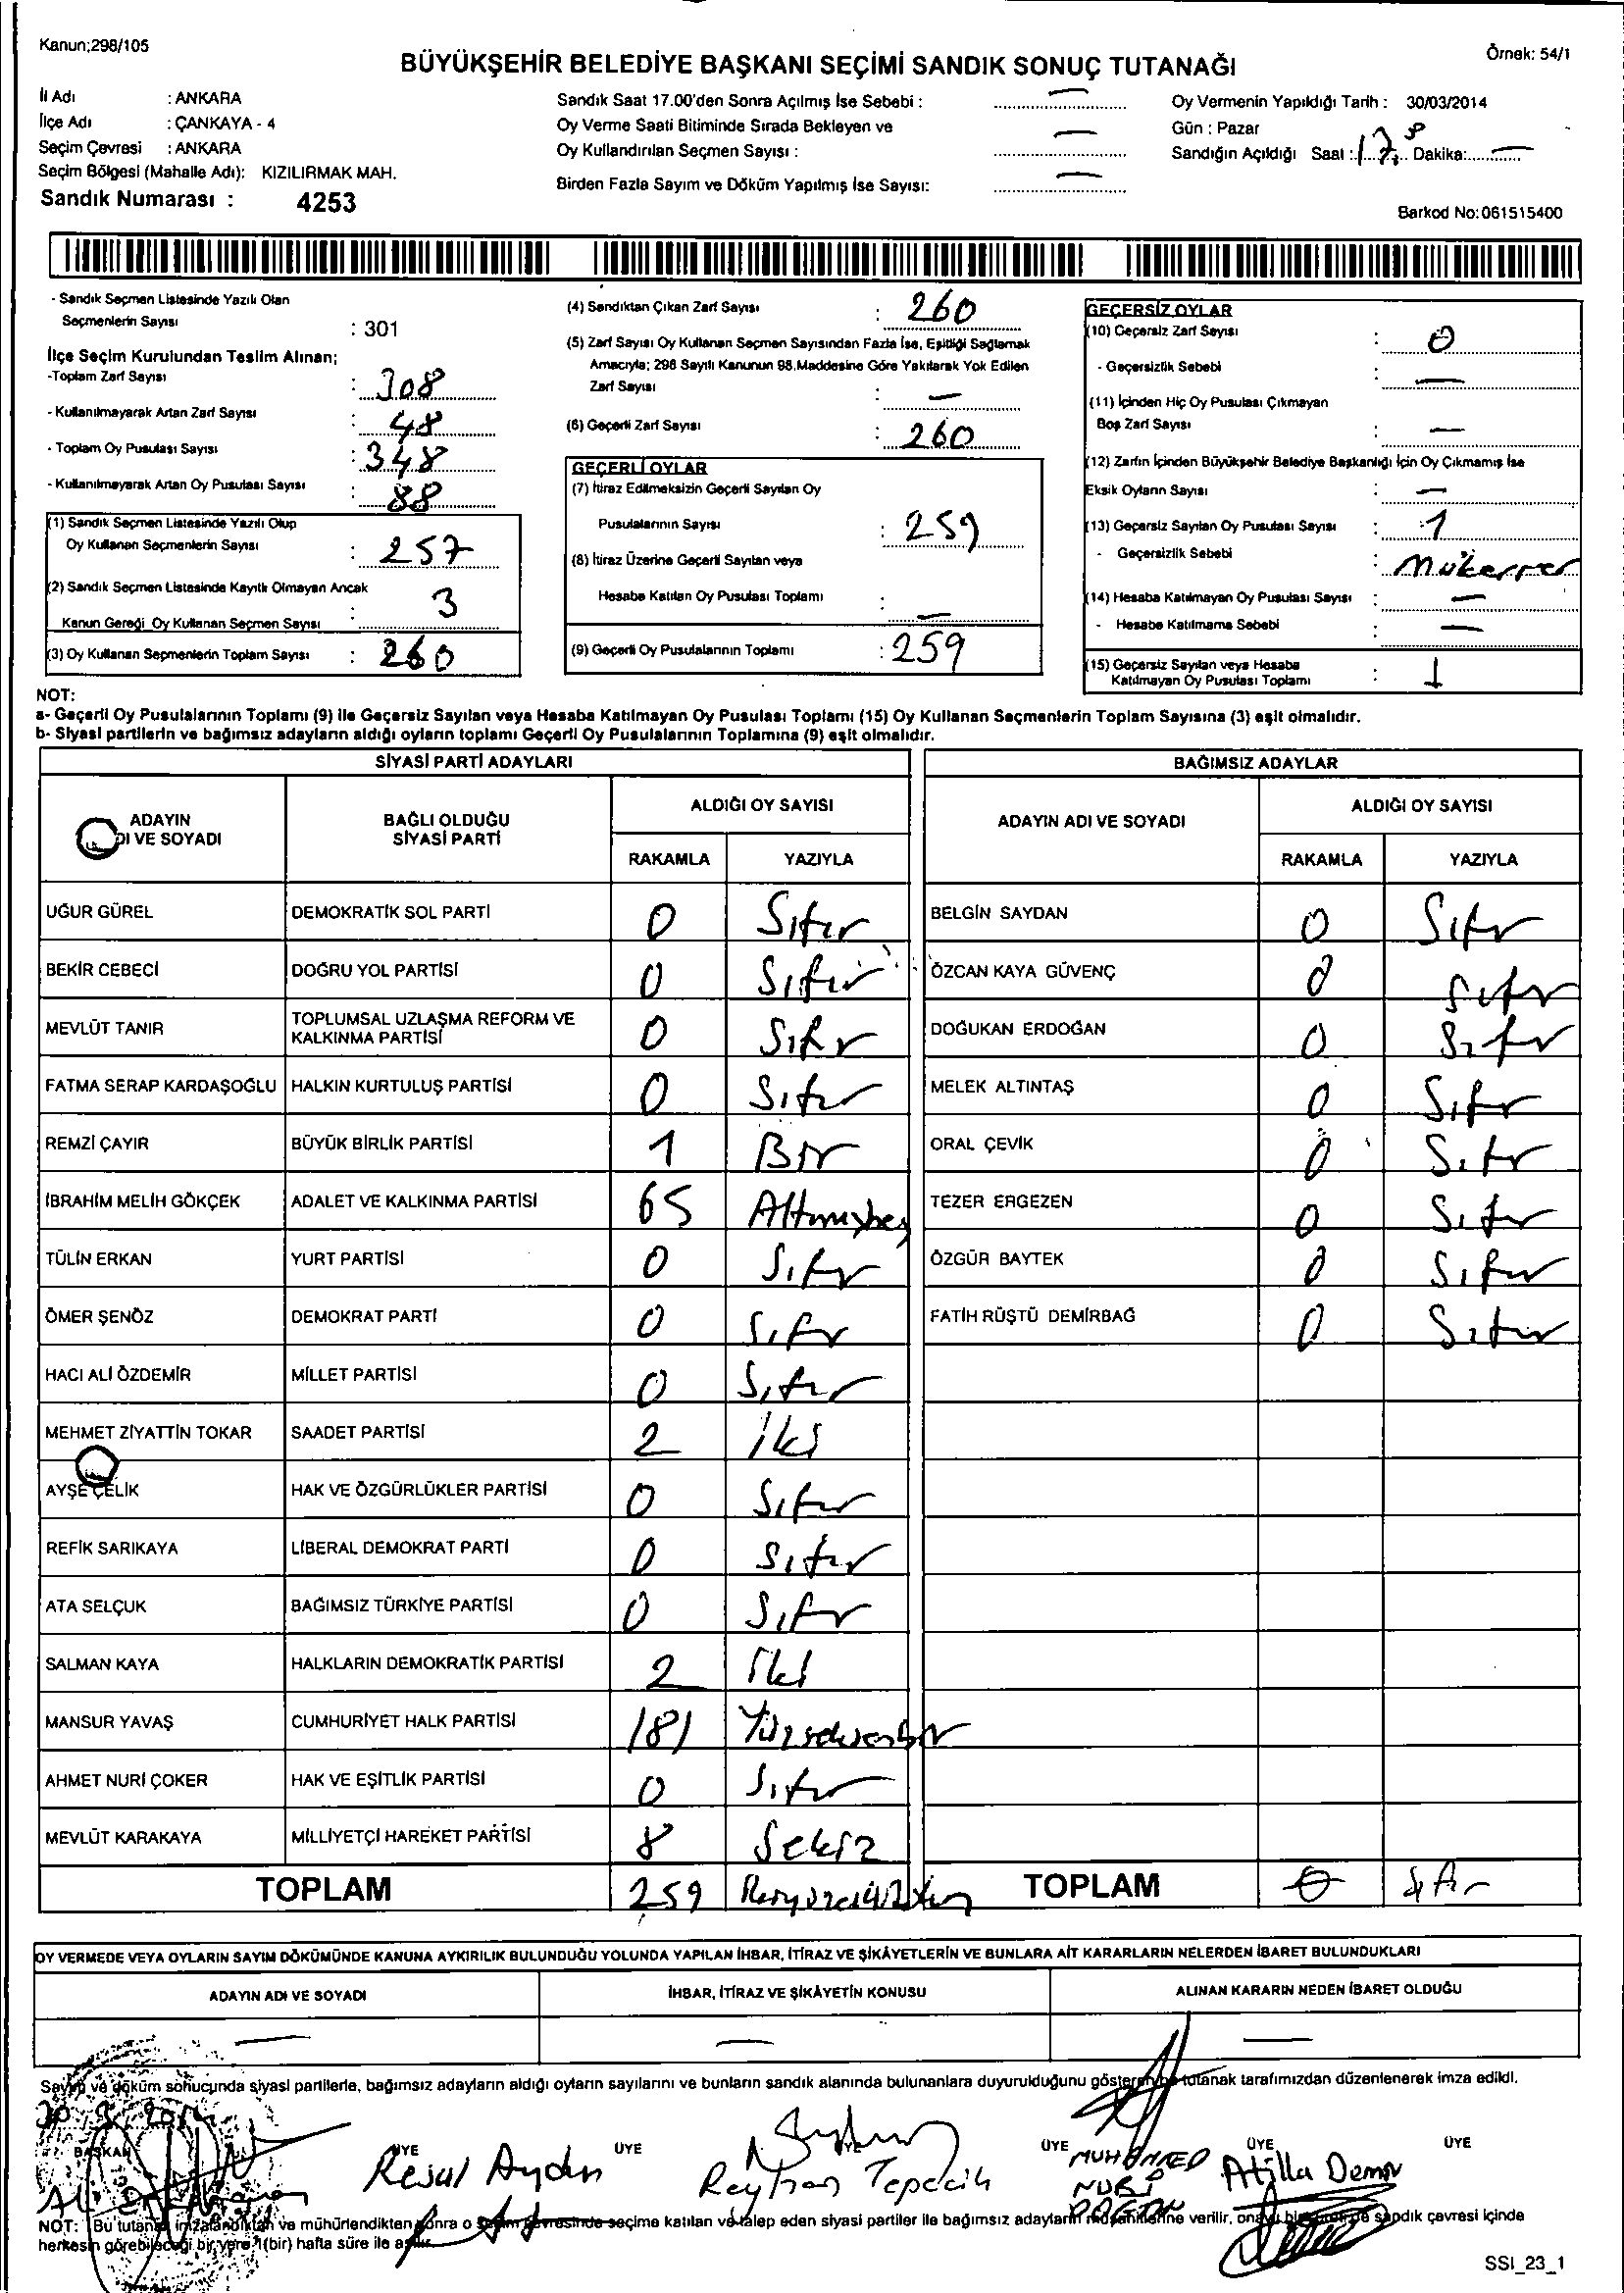 Kanun;298/105
Örnek: 54/1
BÜYÜKŞEHİR BELEDİYE BAŞKANI SEÇİMİ SANDIK SONUÇ TUTANAĞI
İl Adı : ANKARA
İlçe Adı : ÇANKAYA - 4
Seçim Çevresi : ANKARA
Seçim Bölgesi (Mahalle Adı): KIZILIRMAK MAH.
Sandık Numarası : 4253
Sandık Saat 17.00'den Sonra Açılmış İse Sebebi : —
Oy Verme Saati Bitiminde Sırada Bekleyen ve
Oy Kullandırılan Seçmen Sayısı : —
Birden Fazla Sayım ve Döküm Yapılmış İse Sayısı: —
Oy Vermenin Yapıldığı Tarih : 30/03/2014
Gün : Pazar
Sandığın Açıldığı Saat : Dakika:
Barkod No:061515400
- Sandık Seçmen Listesinde Yazılı Olan
Seçmenlerin Sayısı : 301
İlçe Seçim Kurulundan Teslim Alınan;
-Toplam Zarf Sayısı : 308
- Kullanılmayarak Artan Zarf Sayısı : 48
- Toplam Oy Pusulası Sayısı : 348
- Kullanılmayarak Artan Oy Pusulası Sayısı : 88
(1) Sandık Seçmen Listesinde Yazılı Olup
Oy Kullanan Seçmenlerin Sayısı : 257
(2) Sandık Seçmen Listesinde Kayıtlı Olmayan Ancak
Kanun Gereği Oy Kullanan Seçmen Sayısı : 3
(3) Oy Kullanan Seçmenlerin Toplam Sayısı : 260
(4) Sandıktan Çıkan Zarf Sayısı : 260
(5) Zarf Sayısı Oy Kullanan Seçmen Sayısından Fazla İse, Eşitliği Sağlamak
Amacıyla; 298 Sayılı Kanunun 98.Maddesine Göre Yakılarak Yok Edilen
Zarf Sayısı : —
(6) Geçerli Zarf Sayısı : 260
GEÇERLİ OYLAR
(7) İtiraz Edilmeksizin Geçerli Sayılan Oy
Pusulalarının Sayısı : 259
(8) İtiraz Üzerine Geçerli Sayılan veya
Hesaba Katılan Oy Pusulası Toplamı : —
(9) Geçerli Oy Pusulalarının Toplamı : 259
GEÇERSİZ OYLAR
(10) Geçersiz Zarf Sayısı : 0
- Geçersizlik Sebebi : —
(11) İçinden Hiç Oy Pusulası Çıkmayan
Boş Zarf Sayısı : —
(12) Zarfın İçinden Büyükşehir Belediye Başkanlığı İçin Oy Çıkmamış İse
Eksik Oyların Sayısı : —
(13) Geçersiz Sayılan Oy Pusulası Sayısı : 1
- Geçersizlik Sebebi : Mükerrer
(14) Hesaba Katılmayan Oy Pusulası Sayısı : —
- Hesaba Katılmama Sebebi : —
(15) Geçersiz Sayılan veya Hesaba
Katılmayan Oy Pusulası Toplamı : 1
NOT:
a- Geçerli Oy Pusulalarının Toplamı (9) ile Geçersiz Sayılan veya Hesaba Katılmayan Oy Pusulası Toplamı (15) Oy Kullanan Seçmenlerin Toplam Sayısına (3) eşit olmalıdır.
b- Siyasi partilerin ve bağımsız adayların aldığı oyların toplamı Geçerli Oy Pusulalarının Toplamına (9) eşit olmalıdır.
SİYASİ PARTİ ADAYLARI
ADAYIN
ADI VE SOYADI
BAĞLI OLDUĞU
SİYASİ PARTİ
ALDIĞI OY SAYISI
RAKAMLA YAZIYLA
UĞUR GÜREL DEMOKRATİK SOL PARTİ 0 Sıfır
BEKİR CEBECİ DOĞRU YOL PARTİSİ 0 Sıfır
MEVLÜT TANIR TOPLUMSAL UZLAŞMA REFORM VE
KALKINMA PARTİSİ 0 Sıfır
FATMA SERAP KARDAŞOĞLU HALKIN KURTULUŞ PARTİSİ 0 Sıfır
REMZİ ÇAYIR BÜYÜK BİRLİK PARTİSİ 1 Bir
İBRAHİM MELİH GÖKÇEK ADALET VE KALKINMA PARTİSİ 65 Altmışbeş
TÜLİN ERKAN YURT PARTİSİ 0 Sıfır
ÖMER ŞENÖZ DEMOKRAT PARTİ 0 Sıfır
HACI ALİ ÖZDEMİR MİLLET PARTİSİ 0 Sıfır
MEHMET ZİYATTİN TOKAR SAADET PARTİSİ 2 iki
AYŞE ÇELİK HAK VE ÖZGÜRLÜKLER PARTİSİ 0 Sıfır
REFİK SARIKAYA LİBERAL DEMOKRAT PARTİ 0 Sıfır
ATA SELÇUK BAĞIMSIZ TÜRKİYE PARTİSİ 0 Sıfır
SALMAN KAYA HALKLARIN DEMOKRATİK PARTİSİ 2 İki
MANSUR YAVAŞ CUMHURİYET HALK PARTİSİ 181 Yüzseksenbir
AHMET NURİ ÇOKER HAK VE EŞİTLİK PARTİSİ 0 Sıfır
MEVLÜT KARAKAYA MİLLİYETÇİ HAREKET PARTİSİ 8 Sekiz
TOPLAM 259
BAĞIMSIZ ADAYLAR
ADAYIN ADI VE SOYADI
ALDIĞI OY SAYISI
RAKAMLA YAZIYLA
BELGİN SAYDAN 0 Sıfır
ÖZCAN KAYA GÜVENÇ 0 Sıfır
DOĞUKAN ERDOĞAN 0 Sıfır
MELEK ALTINTAŞ 0 Sıfır
ORAL ÇEVİK 0 Sıfır
TEZER ERGEZEN 0 Sıfır
ÖZGÜR BAYTEK 0 Sıfır
FATİH RÜŞTÜ DEMİRBAĞ 0 Sıfır
TOPLAM 0 Sıfır
OY VERMEDE VEYA OYLARIN SAYIM DÖKÜMÜNDE KANUNA AYKIRILIK BULUNDUĞU YOLUNDA YAPILAN İHBAR, İTİRAZ VE ŞİKÂYETLERİN VE BUNLARA AİT KARARLARIN NELERDEN İBARET BULUNDUKLARI
ADAYIN ADI VE SOYADI İHBAR, İTİRAZ VE ŞİKÂYETİN KONUSU ALINAN KARARIN NEDEN İBARET OLDUĞU
— — —
Sayım ve döküm sonucunda siyasi partilerle, bağımsız adayların aldığı oyların sayılarını ve bunların sandık alanında bulunanlara duyurulduğunu gösteren bu tutanak tarafımızdan düzenlenerek imza edildi.
30.3.2014
BAŞKAN ÜYE ÜYE ÜYE ÜYE ÜYE ÜYE
Resul Aydın
Reyhan Tepecik
MUHAMMED
NURİ
Atilla Demir
NOT: Bu tutanak imzalandıktan ve mühürlendikten sonra o seçim çevresinde seçime katılan ve talep eden siyasi partiler ile bağımsız adayların müşahitlerine verilir, onaylı bir sureti de sandık çevresi içinde
herkesin görebileceği bir yere 1(bir) hafta süre ile asılır.
SSI_23_1